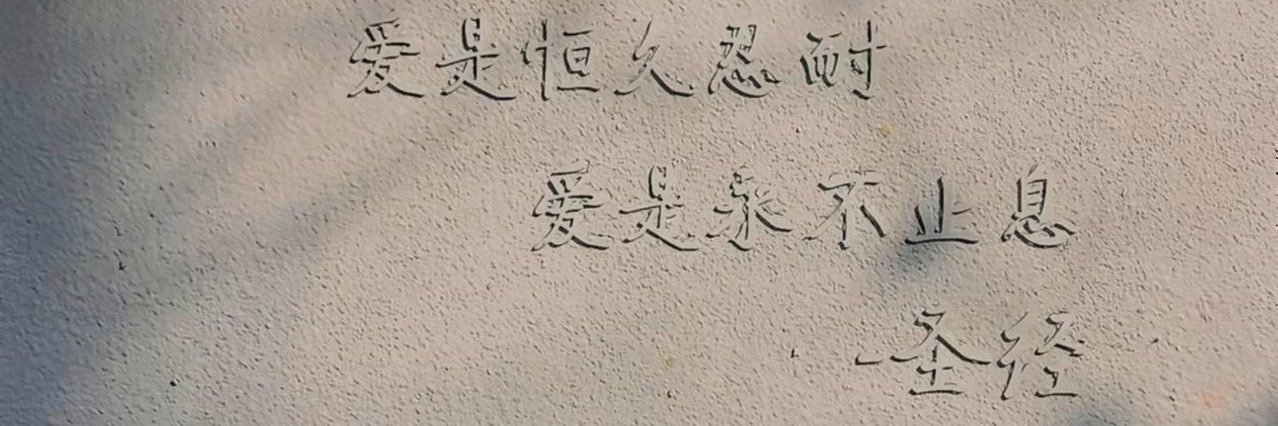 爱是恒久忍耐
爱是永不止息
—圣经